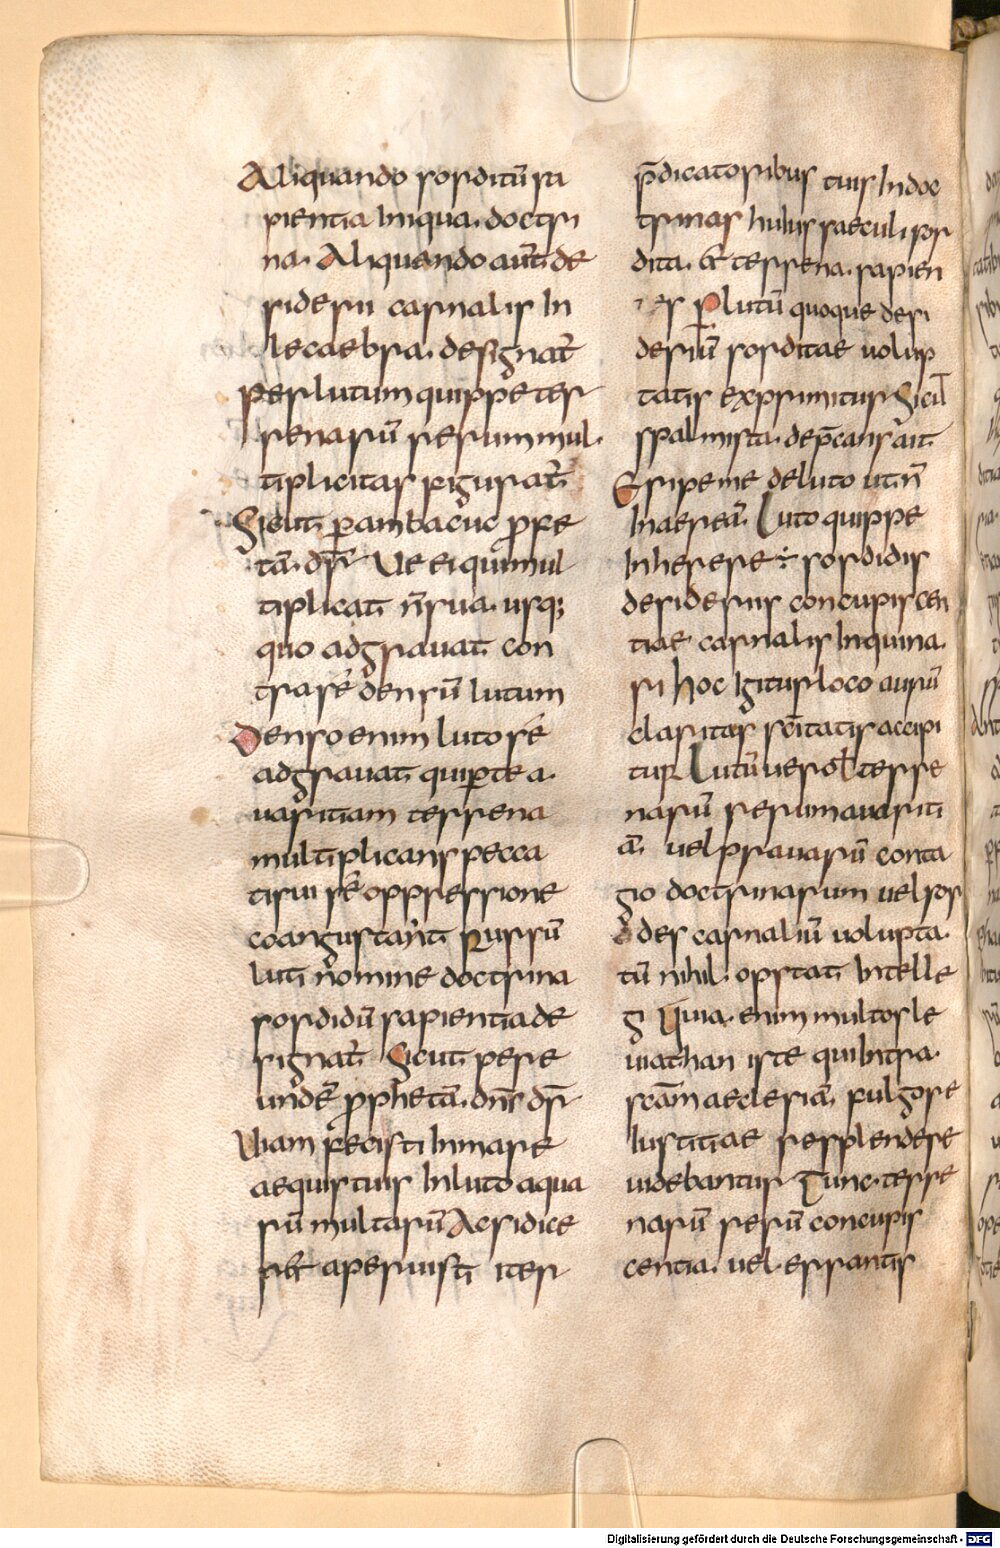 Aliquando sorditū sa
pientia iniqua. doctri
na. Aliquando aut̄ de
siderii carnalis in
lecaebra. designat̄
Per lutum quippe ter
renarū rerum mul.
tiplicitas figurat̄
Sicut p̄ ambacuc profe
tā. dr̄ Ue ei qui mul
tiplicat n̄ sua. usq;
quo adgravat con
tra se densū lutum
Denso enim luto se
adgravat qui p̱ te a.
varitiam terrena
multiplicans pecca
ti sui se oppressione
coangustant Rursū
luti nomine doctrina
sordidū sapientia de
signat̄ Sicut p̱ eǀ
undē prophetā. dn̄o dr̄
Viam fecisti in mare
aequis tuis in luto aqua
rū multarū Ac si dice
ret aperuisti iter
p̄dicatoribus tuis in doc
trinas huius saeculi sor
dita. & terrena. sapien
tes P̱ lutū quoque desi
deriū sorditae volup
tatis exprimitur Sicut
psalmista. dep̄cans ait
Eripe me de luto ut n̄
inaereā. Luto quippe
inherere ÷ sordidis
desideriis concupiscen
tiae carnalis inquina.
ri hoc igitur loco aurū
claritas sc̄itatis accipi
tur Lutū vero ł terre
narū rerum avariti
ā. vel pravarū conta
gio doctrinarum vel sor
des carnaliū volupta.
tū nihil. opstat intelle
gi Quia. enim multos le
viathan iste qui intra.
sc̄am aeclesiā. fulgore
iustitiae resplendere
videbantur Tunc. terre
narū rerū concupis
centia. vel. errantis
Digitalisierung gefördert durch die Deutsche Forschungsgemeinschaft - DFG